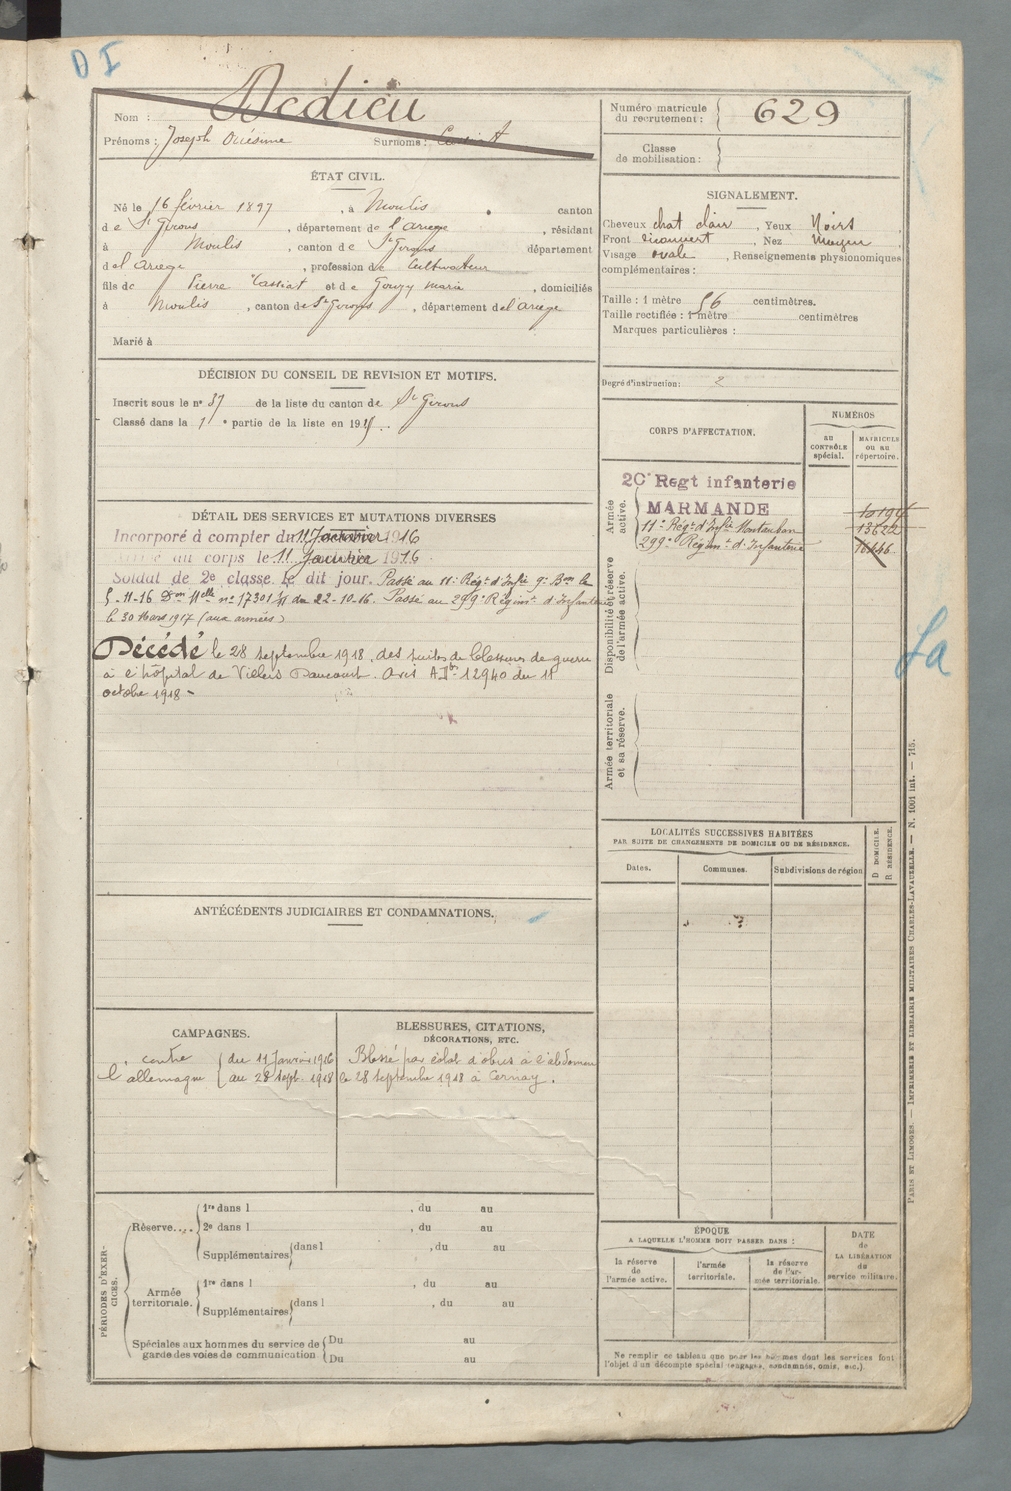 D I
Nom : Dedieu
Prénoms : Joseph Onésime Surnoms :
Numéro matricule du recrutement : 629
Classe de mobilisation :
ÉTAT CIVIL.
Né le 16 février 1897, à Moulis canton
de St Girons, département de l'Ariege, résidant
à Moulis, canton de St Girons département
de l'Ariege, profession de Cultivateur
fils de Pierre Cassiat et de Gouzy Maria, domiciliés
à Moulis, canton de St Girons, département de l'Ariege
Marié à
SIGNALEMENT.
Cheveux chat clair, Yeux Noirs
Front découvert, Nez moyen
Visage ovale, Renseignements physionomiques
complémentaires :
Taille : 1 mètre 56 centimètres.
Taille rectifiée : 1 mètre centimètres
Marques particulières :
Degré d'instruction : 2
DÉCISION DU CONSEIL DE REVISION ET MOTIFS.
Inscrit sous le n° 37 de la liste du canton de St Girons
Classé dans la 1 e partie de la liste en 191
CORPS D'AFFECTATION.
NUMÉROS
au CONTRÔLE spécial.
MATRICULE ou au répertoire.
Armée active.
20e Regt infanterie
MARMANDE
11e Régt d'Infie Montauban 13622
299e Régimt d'Infanterie
Disponibilité et réserve de l'armée active.
Armée territoriale et sa réserve.
DÉTAIL DES SERVICES ET MUTATIONS DIVERSES
Incorporé à compter du 11 Janvier 1916
Arrivé au corps le 11 Janvier 1916
Soldat de 2e classe le dit jour. Passé au 11e Régt d'Infie 9e Bon le
5-11-16 Don Mlle n° 17301 du 22-10-16. Passé au 299e Régimt d'Infanterie
le 30 Mars 1917 (aux armées)
Décédé le 28 septembre 1918, des suites de blessures de guerre
à l'hôpital de Villers Daucourt. Avis 12940 du 11
octobre 1918 -
La
LOCALITÉS SUCCESSIVES HABITÉES
PAR SUITE DE CHANGEMENTS DE DOMICILE OU DE RÉSIDENCE.
Dates. Communes. Subdivisions de région
D. DOMICILE.
R. RÉSIDENCE.
ANTÉCÉDENTS JUDICIAIRES ET CONDAMNATIONS.
CAMPAGNES.
contre l'allemagne
du 11 Janvier 1916
au 28 Sept. 1918
BLESSURES, CITATIONS,
DÉCORATIONS, ETC.
Blessé par éclat d'obus à l'abdomen
le 28 Septembre 1918 à Cernay.
PÉRIODES D'EXERCICES.
Réserve....
1re dans l , du au
2e dans l , du au
Supplémentaires dans l , du au
Armée territoriale.
1re dans l , du au
Supplémentaires dans l , du au
Spéciales aux hommes du service de
garde des voies de communication
Du au
Du au
ÉPOQUE
A LAQUELLE L'HOMME DOIT PASSER DANS :
la réserve de l'armée active.
l'armée territoriale.
la réserve de l'armée territoriale.
DATE de LA LIBÉRATION du service militaire.
Ne remplir ce tableau que pour les hommes dont les services font
l'objet d'un décompte spécial (engagés, condamnés, omis, etc.).
PARIS ET LIMOGES. — IMPRIMERIE ET LIBRAIRIE MILITAIRES CHARLES-LAVAUZELLE. — N. 1001 int. — 715.